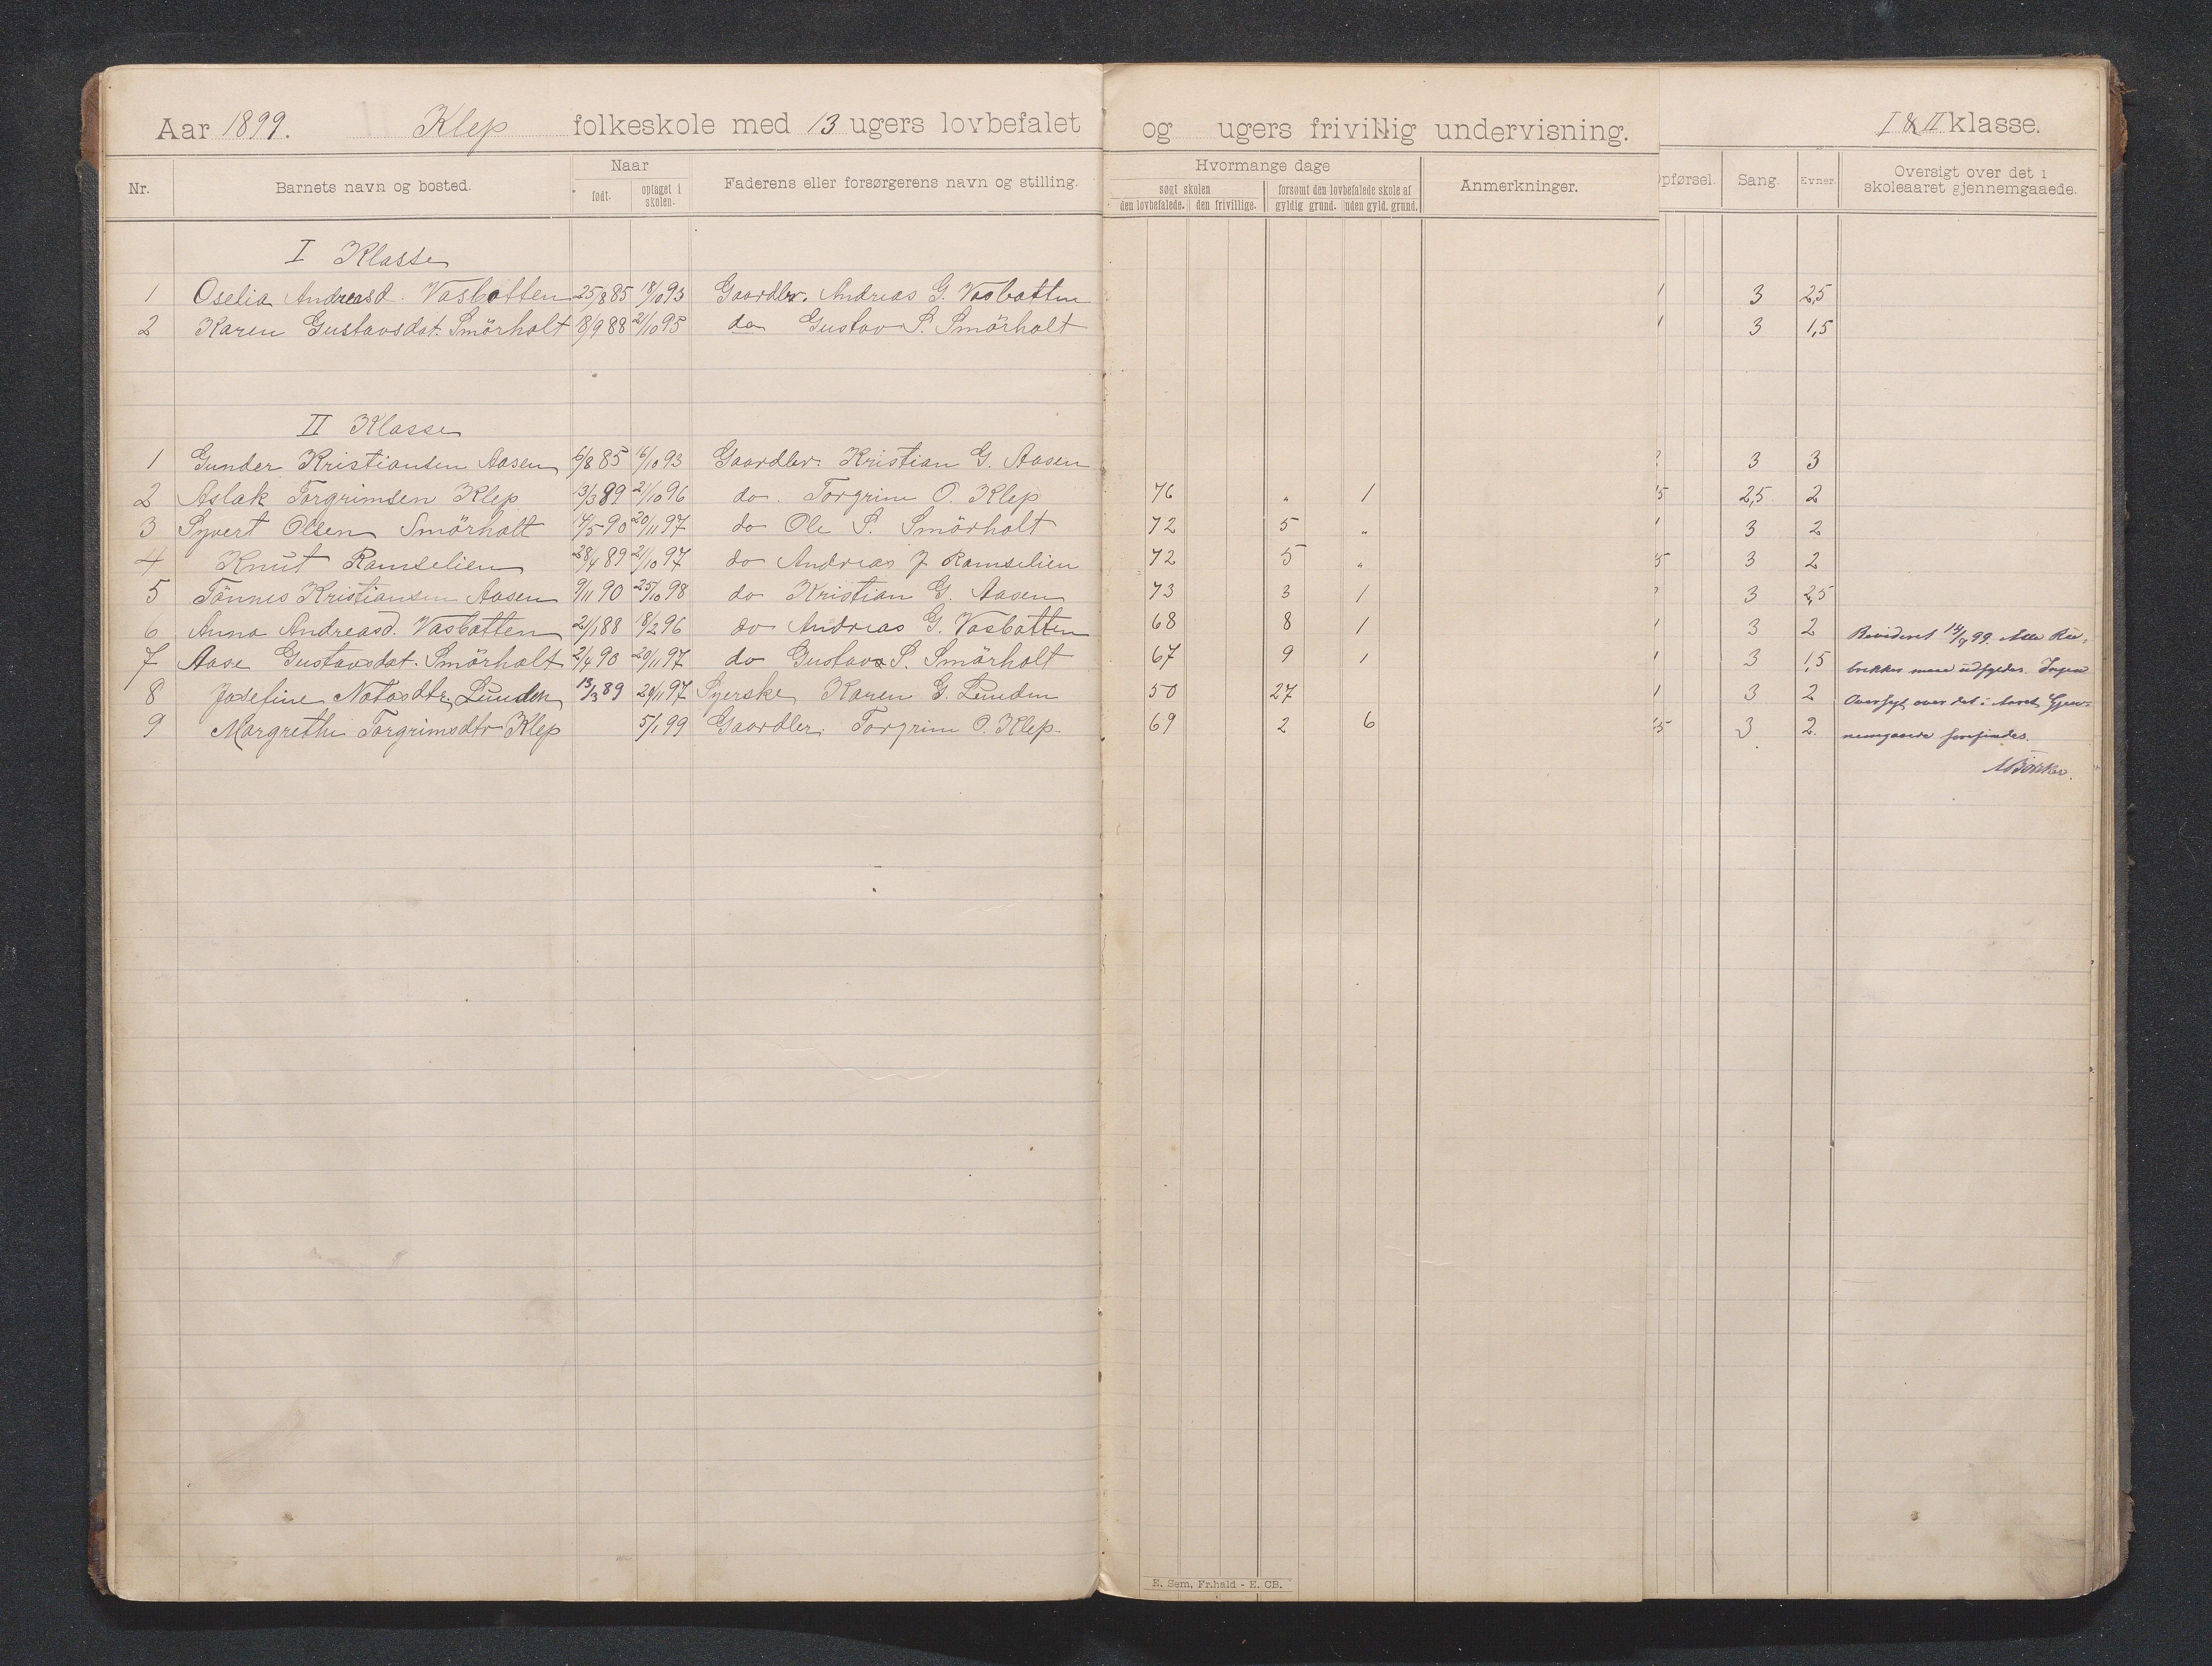 Aar 1899. Klep folkeskole med 13 ugers lovbefalet og ugers frivillig undervisning. I & II klasse.
Nr. Barnets navn og bosted. Naar født. optaget i skolen. Faderens eller forsørgerens navn og stilling. Hvormange dage søgt skolen den lovbefalede. den frivillige. forsømt den lovbefalede skole af gyldig grund. uden gyld. grund. Anmerkninger. pførsel. Sang. Evner. Oversigt over det i skoleaaret gjennemgaaede.
I Klasse
1 Oselia Andreasd. Vasbotten 25/8 85 18/10 93 Gaardbr. Andreas G. Vasbotten 3 2,5
2 Karen Gustavsdat. Smörholt 18/9 88 21/10 95 do Gustav S. Smörholt 3 1,5
II Klasse
1 Gunder Kristiansen Aasen 6/8 85 16/10 93 Gaardbr. Kristian G. Aasen 3 3
2 Aslak Torgrimsen Klep 13/3 89 21/10 96 do. Torgrim O. Klep 76 " 1 2,5 2
3 Syvert Olsen Smörholt 14/5 90 20/11 97 do Ole S. Smörholt 72 5 " 3 2
4 Knut Ramselien 28/4 89 21/10 97 do Andreas J Ramselien 72 5 " 3 2
5 Tönnes Kristiansen Aasen 9/11 90 25/10 98 do Kristian G. Aasen 73 3 1 3 2,5
6 Anna Andreasd. Vasbotten 21/1 88 18/2 96 do Andreas G. Vasbotten 68 8 1 3 2
7 Aase Gustavsdat. Smörholt 2/4 90 20/11 97 do Gustav S. Smörholt 67 9 1 3 1,5
8 Josefine Notosdtr. Lunden 13/3 89 29/11 97 Syerske Karen G. Lunden 50 27 3 2
9 Margrethe Torgrimsdtr Klep 5/1 99 Gaardbr. Torgrim O. Klep. 69 2 6 3 2.
Revideret 14/8 99. Alle Ru-
brikker maa udfyldes. Ingen
Oversigt over det i Aaret Gjen-
nemgaaede forefindes.
E. Sem, Fr.hald - E. CB.